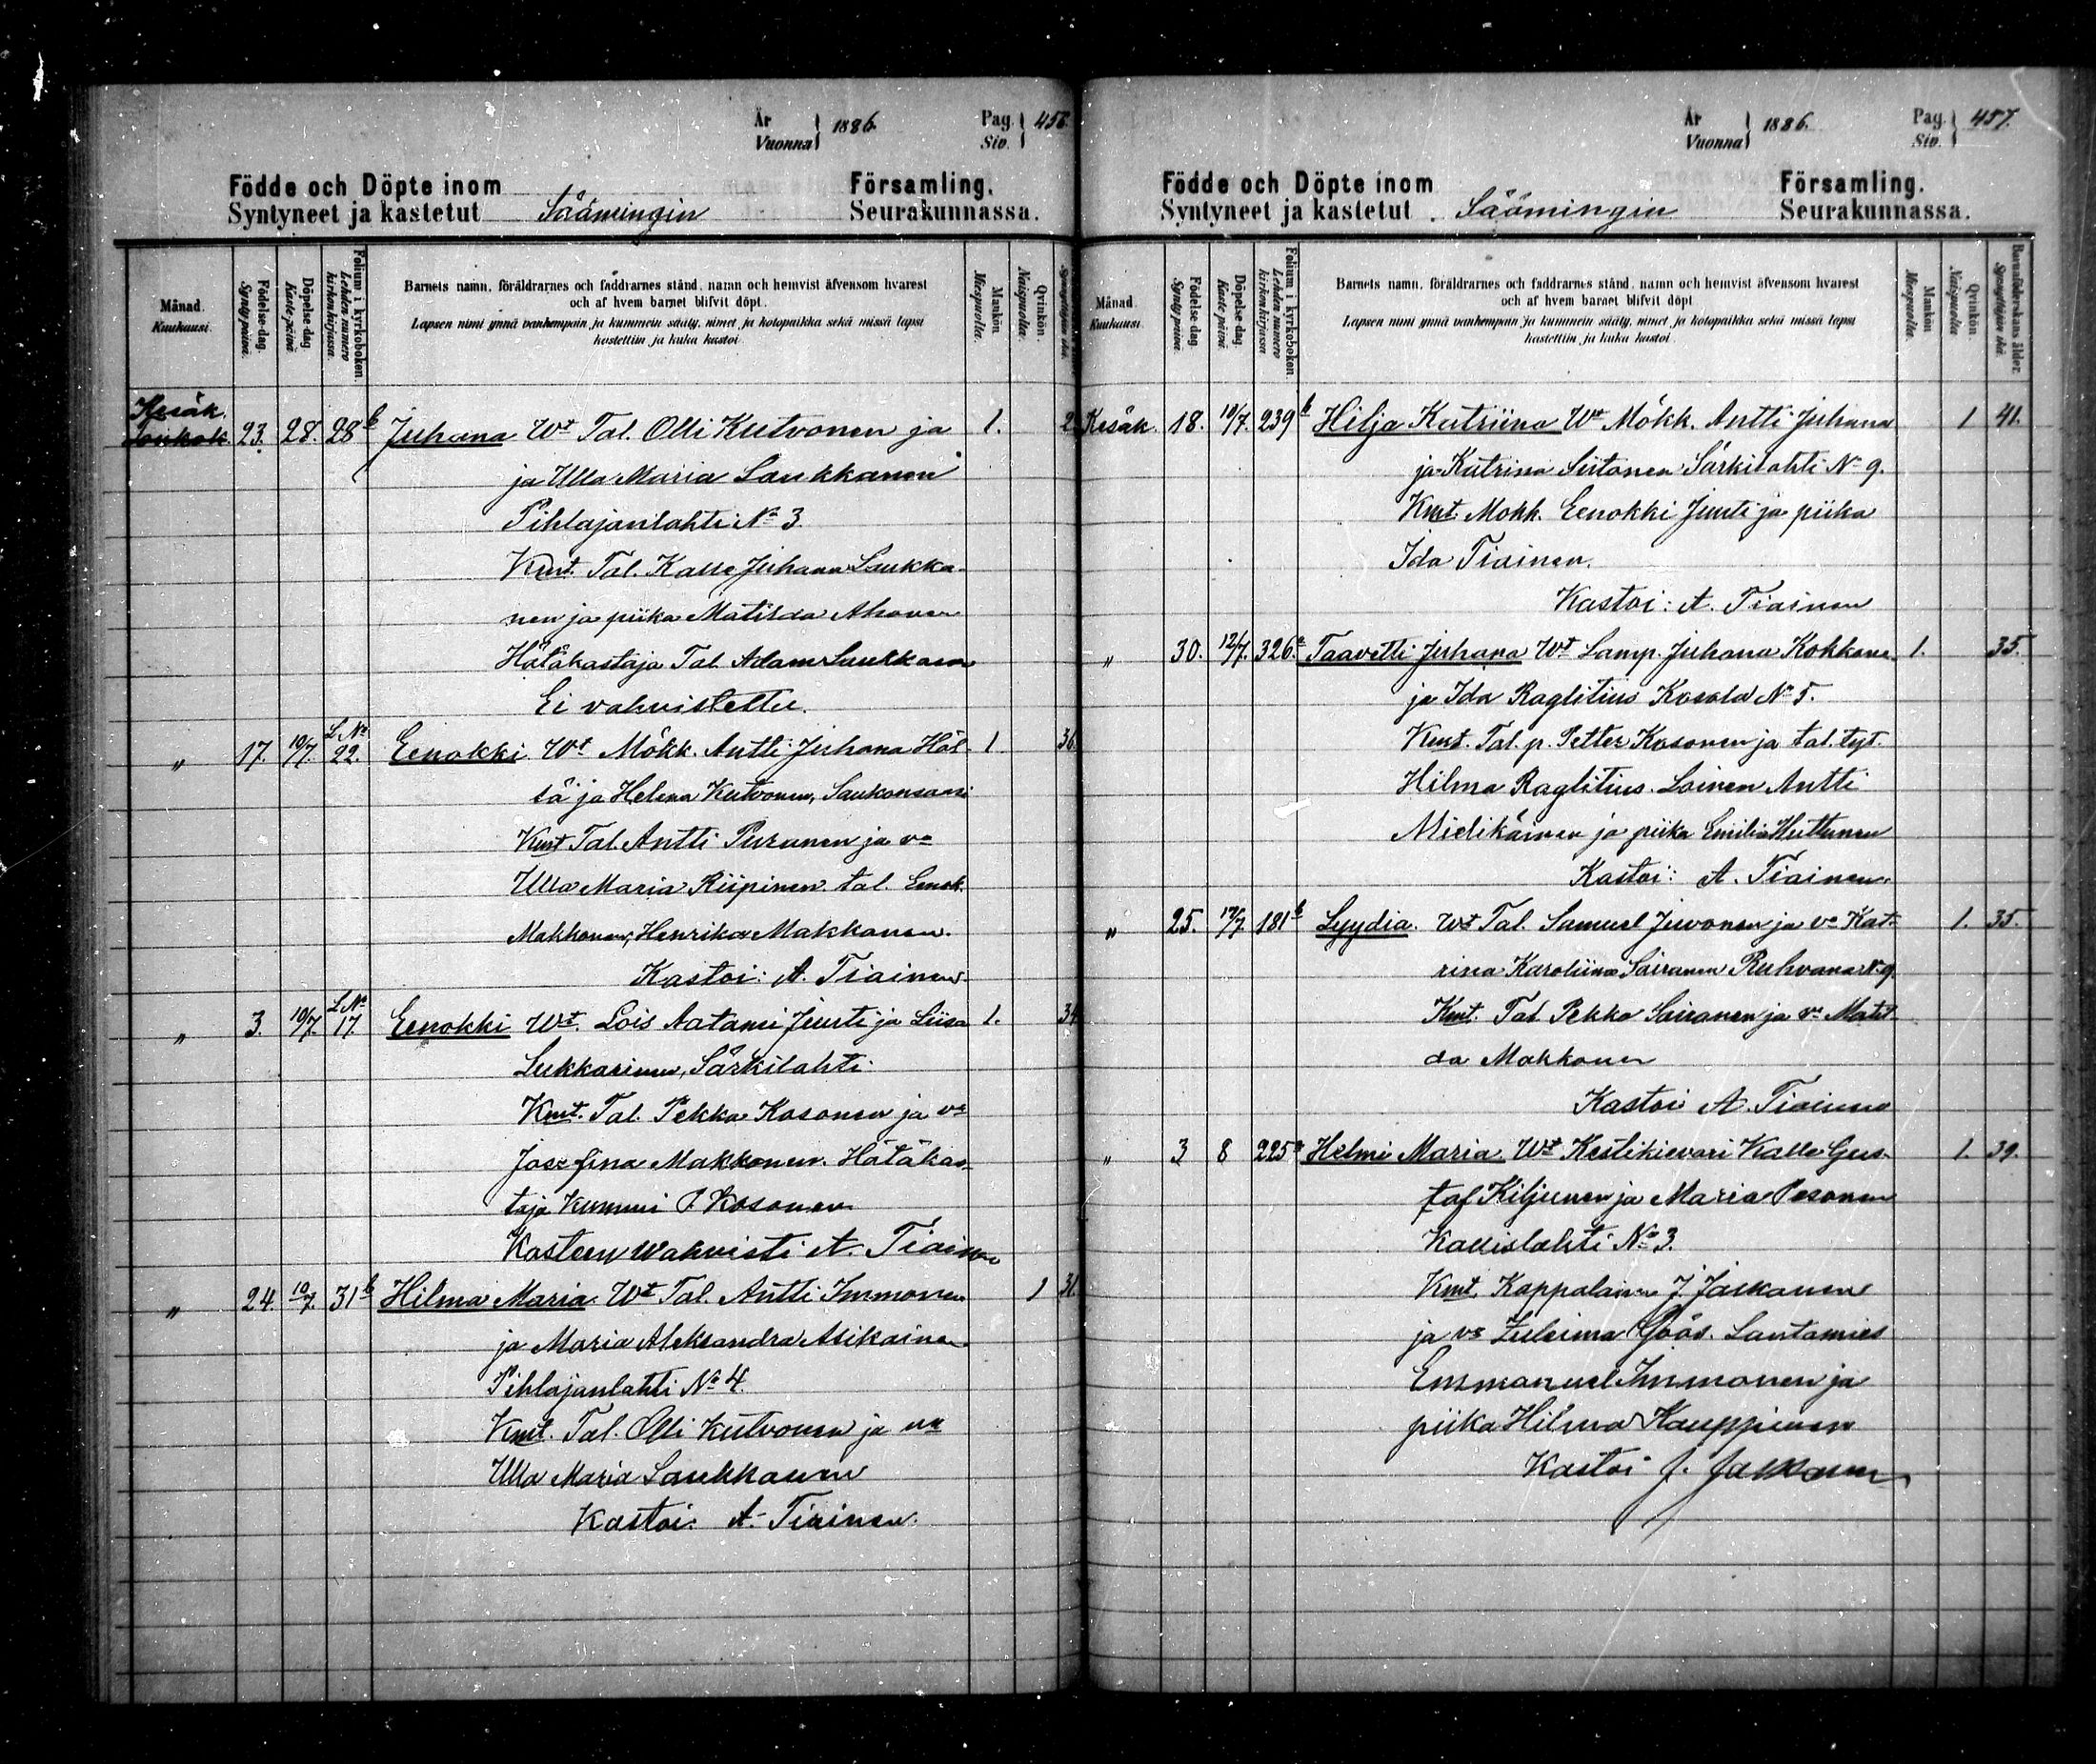 År
Vuonna 1886. Pag. Siv. 456
Födde och Döpte inom Församling.
Syntyneet ja kastetut Säämingin Seurakunnassa.
Månad. Kuukausi.
Födelse-dag. Synty päivä.
Döpelse-dag Kaste päivä
Folium i kyrkoboken. Lehden numero kirkonkirjassa.
Barnets namn, föräldrarnes och faddrarnes stånd, namn och hemvist äfvensom hvarest
och af hvem barnet blifvit döpt.
Lapsen nimi ynnä vanhempain ja kummein sääty, nimet ja kotopaikka sekä missä lapsi
kastettiin ja kuka kastoi
Mankön Miespuolia.
Qvinkön. Naispuolia.
Kesäk.
Toukok 23. 28. 28 b Juhana Wt Tal. Olli Kutvonen ja 1. 2
ja Ulla Maria Laukkanen
Pihlajanlahti No 3.
Kmt. Tal. Kalle Juhana Laukka-
nen ja piika Matilda Ahonen
Hätäkastaja Tal. Adam Laukkanen
Ei vahvistettu.
" 17. 10/7. L. No 22. Eenokki Wt Mökk. Antti Juhana Höl- 1. 36
tä ja Helena Kutvonen, Saukonsaari
Kmt Tal. Antti Puranen ja vo
Ulla Maria Riipinen tal. Eenok.
Makkonen, Henrika Makkonen.
Kastoi: A. Tiainen.
" 3. 10/7. L. No 17. Eenokki Wt. Lois Aatami Juuti ja Liisa 1. 34
Lukkarinen, Särkilahti.
Kmt. Tal. Pekka Kosonen ja vo
Josefina Makkonen. Hätäkas-
taja Kummi P. Kosonen
Kasteen wahvisti A. Tiainen
" 24. 10/7. 31 b Hilma Maria Wt Tal. Antti Immonen 1 31.
ja Maria Aleksandra Asikainen
Pihlajanlahti No 4.
Kmt. Tal. Olli Kutvonen ja vo
Ulla Maria Laukkanen
Kastoi: A. Tiainen.
År
Vuonna 1886. Pag. Siv. 457.
Födde och Döpte inom Församling.
Syntyneet ja kastetut Säämingin Seurakunnassa.
Månad. Kuukausi.
Födelse dag. Synty päivä.
Döpelse-dag Kaste päivä.
Folium i kyrkoboken. Lehden numero kirkonkirjassa
Barnets namn, föräldrarnes och faddrarnes stånd, namn och hemvist äfvensom hvarest
och af hvem barnet blifvit döpt
Lapsen nimi ynnä vanhempain ja kummein sääty, nimet ja kotopaikka sekä missä lapsi
kastettiin ja kuka kastoi
Mankön Miespuolia.
Qvinkön. Naispuolia
Barnaföderskans ålder. Synnyttäjän ikä.
Kesäk. 18. 10/7. 239 b Hilja Katriina Wt Mökk. Antti Juhana 1 41.
ja Katrina Siitonen Särkilahti No 9.
Kmt. Mökk. Eenokki Juuti ja piika
Ida Tiainen.
Kastoi: A. Tiainen
" 30. 12/7. 326. a Taavetti Juhana Wt Lamp. Juhana Kokkone 1. 35.
ja Ida Raglitius Kosola No 5.
Kmt. Tal. p. Petter Kosonen ja tal. tyt.
Hilma Raglitius. Loinen Antti
Mielikäinen ja piika Emilia Huttunen
Kastoi: A. Tiainen.
" 25. 12/7. 181 b Lyydia. Wt Tal. Samuel Juvonen ja vo Kat- 1. 35.
rina Karoliina Sairanen Ruhvana No 9.
Kmt. Tal. Pekka Sairanen ja vo Matil-
da Makkonen
Kastoi A. Tiainen
" 3 8 225 a Helmi Maria Wt Kestikievari Kalle Gus- 1. 39.
taf Kiljunen ja Maria Pesonen
Kallislahti No 3.
Kmt. Kappalainen J. Jaskanen
ja vo Zuleima Göös. Lautamies
Emmanuel Immonen ja
piika Hilma Kauppinen
Kastoi J. Jaskanen